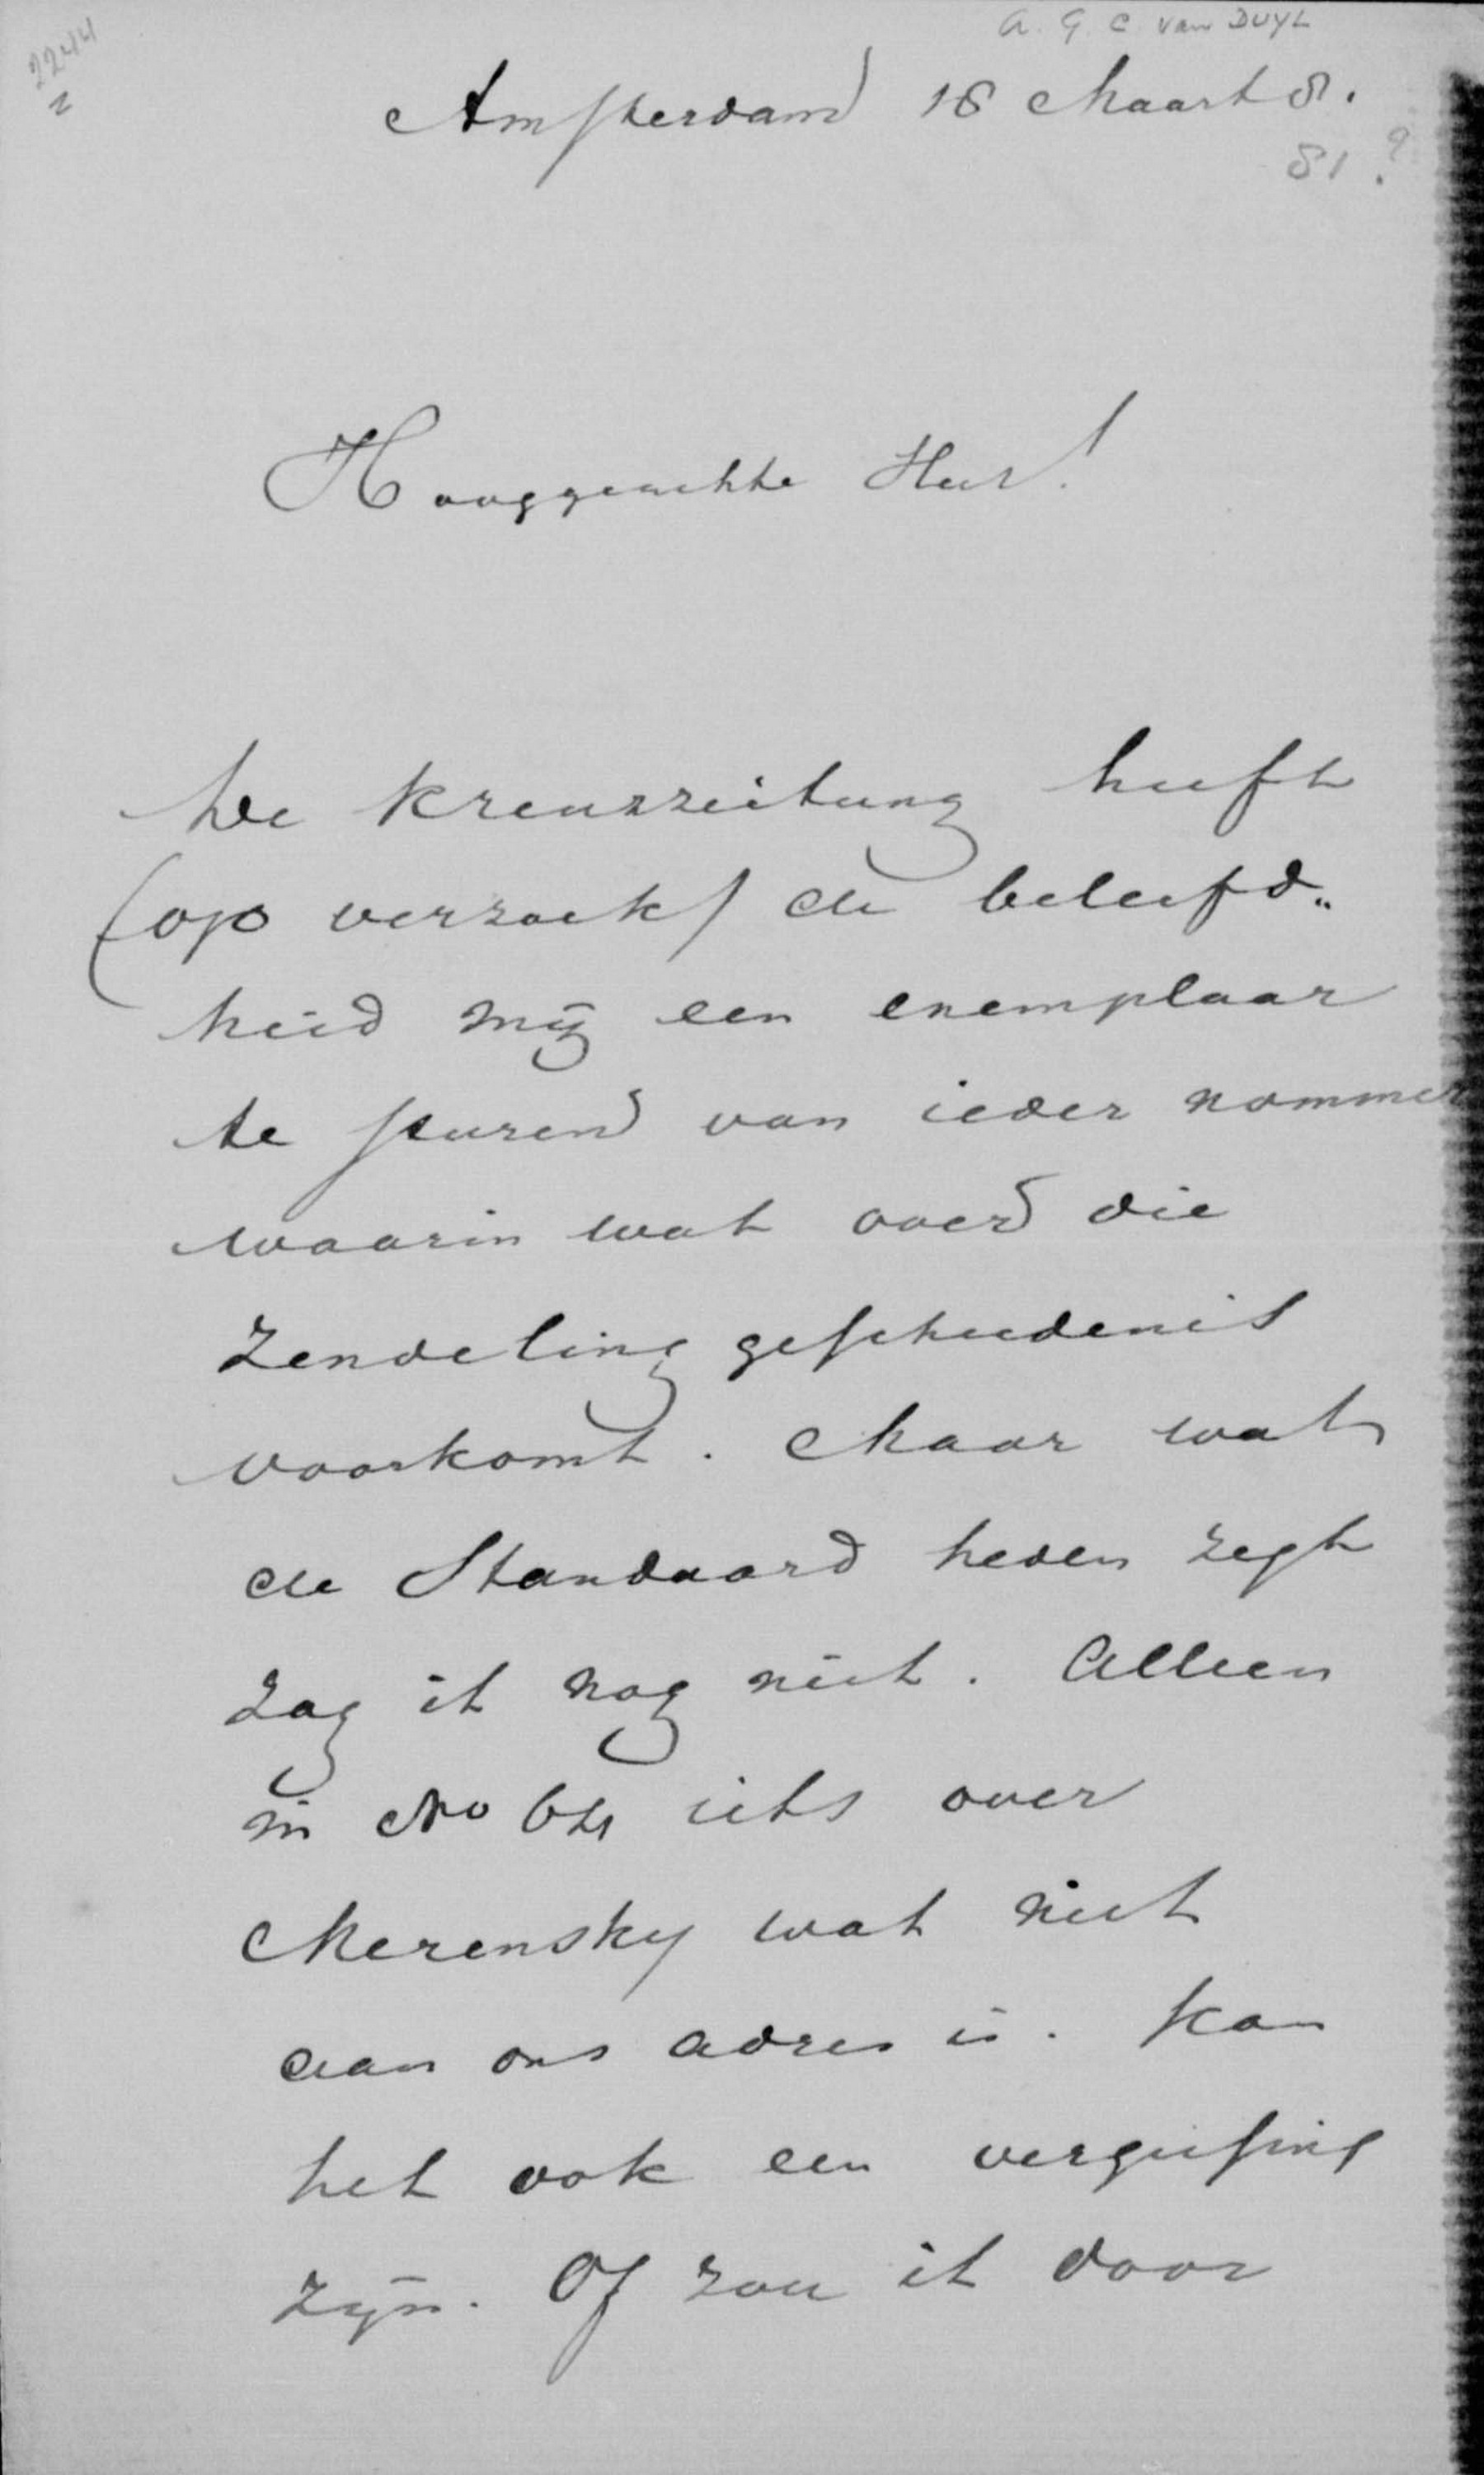 2244
A. G. C. van DUYL
Amsterdam 18 Maart 8.
81?
Hooggeachte Heer!
De Kreuzzeitung heeft
(op verzoek) de beleefd„
heid mij een exemplaar
te sturen van ieder nommer
waarin wat over die
zendeling geschiedenis
voorkomt. Maar wat
de Standaard heden zegt
zag ik nog niet. Alleen
in No 64 iets over
Merensky wat niet
aan ons adres is. Kan
het ook een vergissing
zijn. Of zou ik door